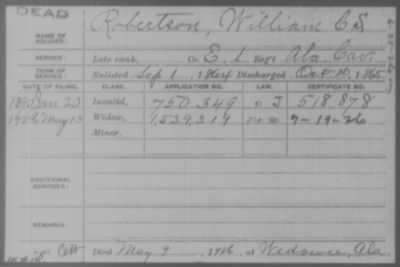 DEAD
NAME OF SOLDIER: Robertson, William C S
SERVICE: Late rank, Co. E, 1. Reg't Ala. Cav.
TERM OF SERVICE: Enlisted Sep 1, 1864 Discharged Oct 20, 1865
DATE OF FILING. CLASS. APPLICATION NO. LAW. CERTIFICATE NO.
1890 Jan 20 Invalid, 750,349 J 518,878
1926 May 13 Widow, 1,539,319 9-19-26
Minor,
ADDITIONAL SERVICES:
REMARKS:
Died May 9, 1926, at Wedowee, Ala.